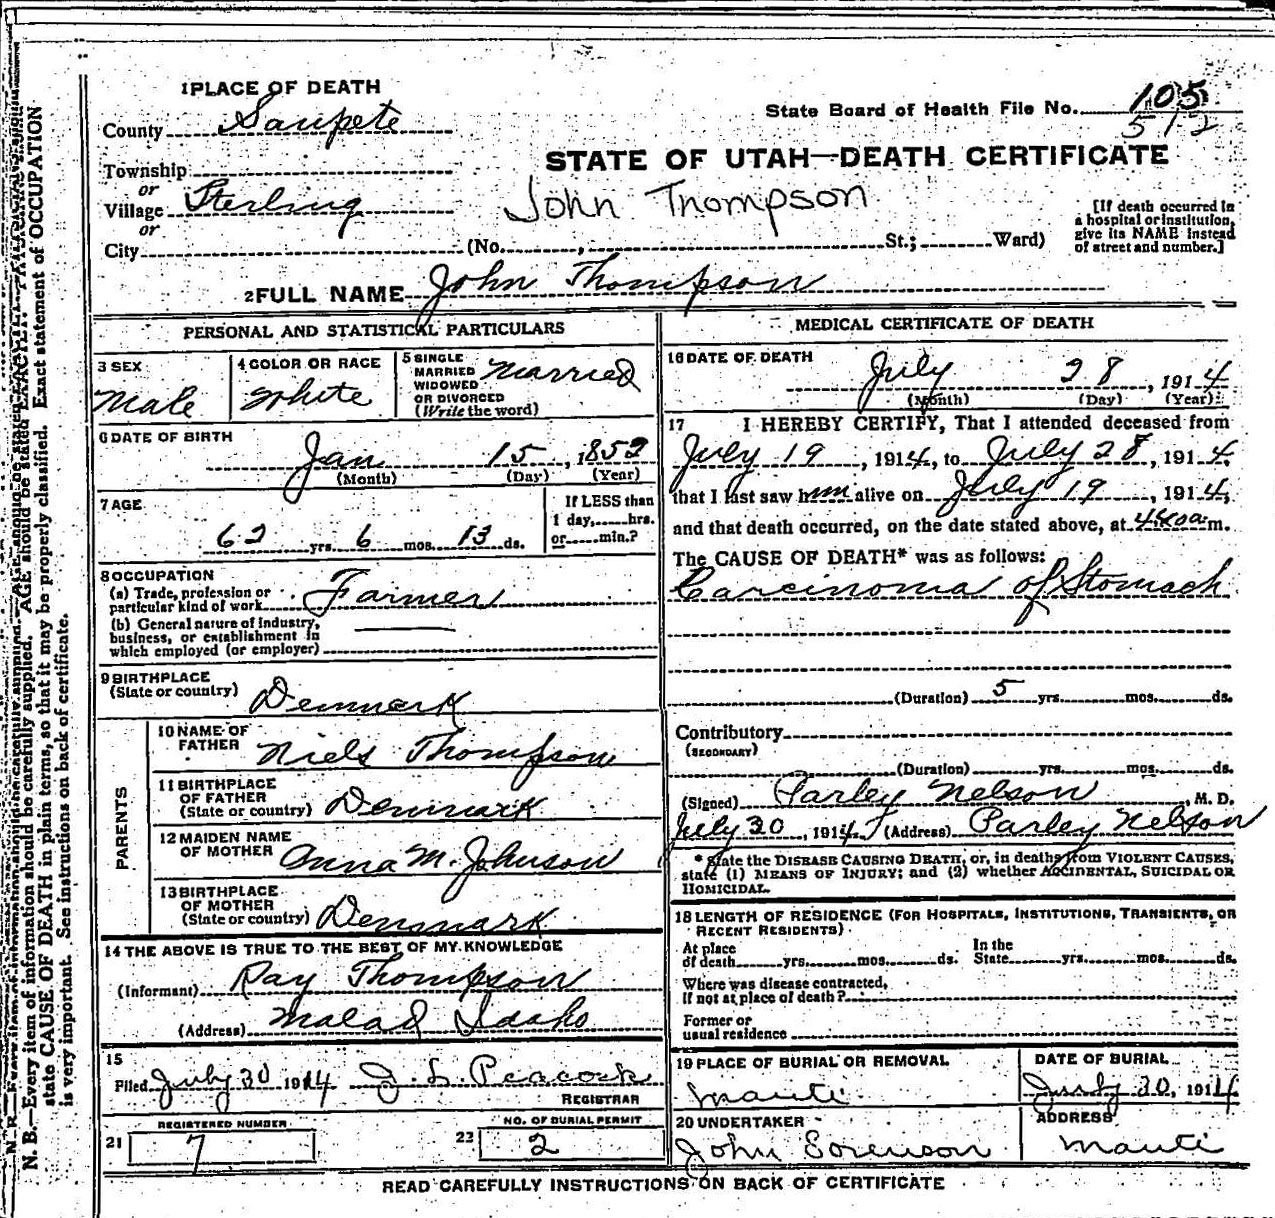 1 PLACE OF DEATH
County Sanpete
State Board of Health File No. 105
512
STATE OF UTAH—DEATH CERTIFICATE
Township
or
Village Sterling
John Thompson
or
City (No. , St.; Ward)
[If death occurred in
a hospital or institution,
give its NAME instead
of street and number.]
2 FULL NAME John Thompson
PERSONAL AND STATISTICAL PARTICULARS
3 SEX
Male
4 COLOR OR RACE
White
5 SINGLE
MARRIED
WIDOWED
OR DIVORCED
(Write the word)
Married
6 DATE OF BIRTH
Jan 15, 1852
(Month) (Day) (Year)
7 AGE
62 yrs. 6 mos. 13 ds.
If LESS than
1 day, hrs.
or min.?
8 OCCUPATION
(a) Trade, profession or
particular kind of work Farmer
(b) General nature of industry,
business, or establishment in
which employed (or employer)
9 BIRTHPLACE
(State or country) Denmark
PARENTS
10 NAME OF
FATHER Niels Thompson
11 BIRTHPLACE
OF FATHER
(State or country) Denmark
12 MAIDEN NAME
OF MOTHER Anna M. Johnson
13 BIRTHPLACE
OF MOTHER
(State or country) Denmark
14 THE ABOVE IS TRUE TO THE BEST OF MY KNOWLEDGE
(Informant) Ray Thompson
(Address) Malad Idaho
15
Filed July 30 1914 J. L. Peacock
REGISTRAR
REGISTERED NUMBER
21 7
NO. OF BURIAL PERMIT
22 2
MEDICAL CERTIFICATE OF DEATH
16 DATE OF DEATH
July 28, 1914
(Month) (Day) (Year)
17 I HEREBY CERTIFY, That I attended deceased from
July 19, 1914, to July 28, 1914,
that I last saw him alive on July 19, 1914,
and that death occurred, on the date stated above, at 440a m.
The CAUSE OF DEATH* was as follows:
Carcinoma of Stomach
(Duration) 5 yrs. mos. ds.
Contributory
(SECONDARY)
(Duration) yrs. mos. ds.
(Signed) Parley Nelson, M. D.
July 30, 1914 (Address) Parley Nelson
* State the DISEASE CAUSING DEATH, or, in deaths from VIOLENT CAUSES,
state (1) MEANS OF INJURY; and (2) whether ACCIDENTAL, SUICIDAL OR
HOMICIDAL.
18 LENGTH OF RESIDENCE (FOR HOSPITALS, INSTITUTIONS, TRANSIENTS, OR
RECENT RESIDENTS)
At place
of death yrs. mos. ds.
In the
State yrs. mos. ds.
Where was disease contracted,
if not at place of death?
Former or
usual residence
19 PLACE OF BURIAL OR REMOVAL
Manti
DATE OF BURIAL
July 30, 1914
20 UNDERTAKER
John Sorenson
ADDRESS
Manti
READ CAREFULLY INSTRUCTIONS ON BACK OF CERTIFICATE
N. B.—Every item of information should be carefully supplied. AGE should be stated EXACTLY.
state CAUSE OF DEATH in plain terms, so that it may be properly classified. Exact statement of OCCUPATION
is very important. See instructions on back of certificate.